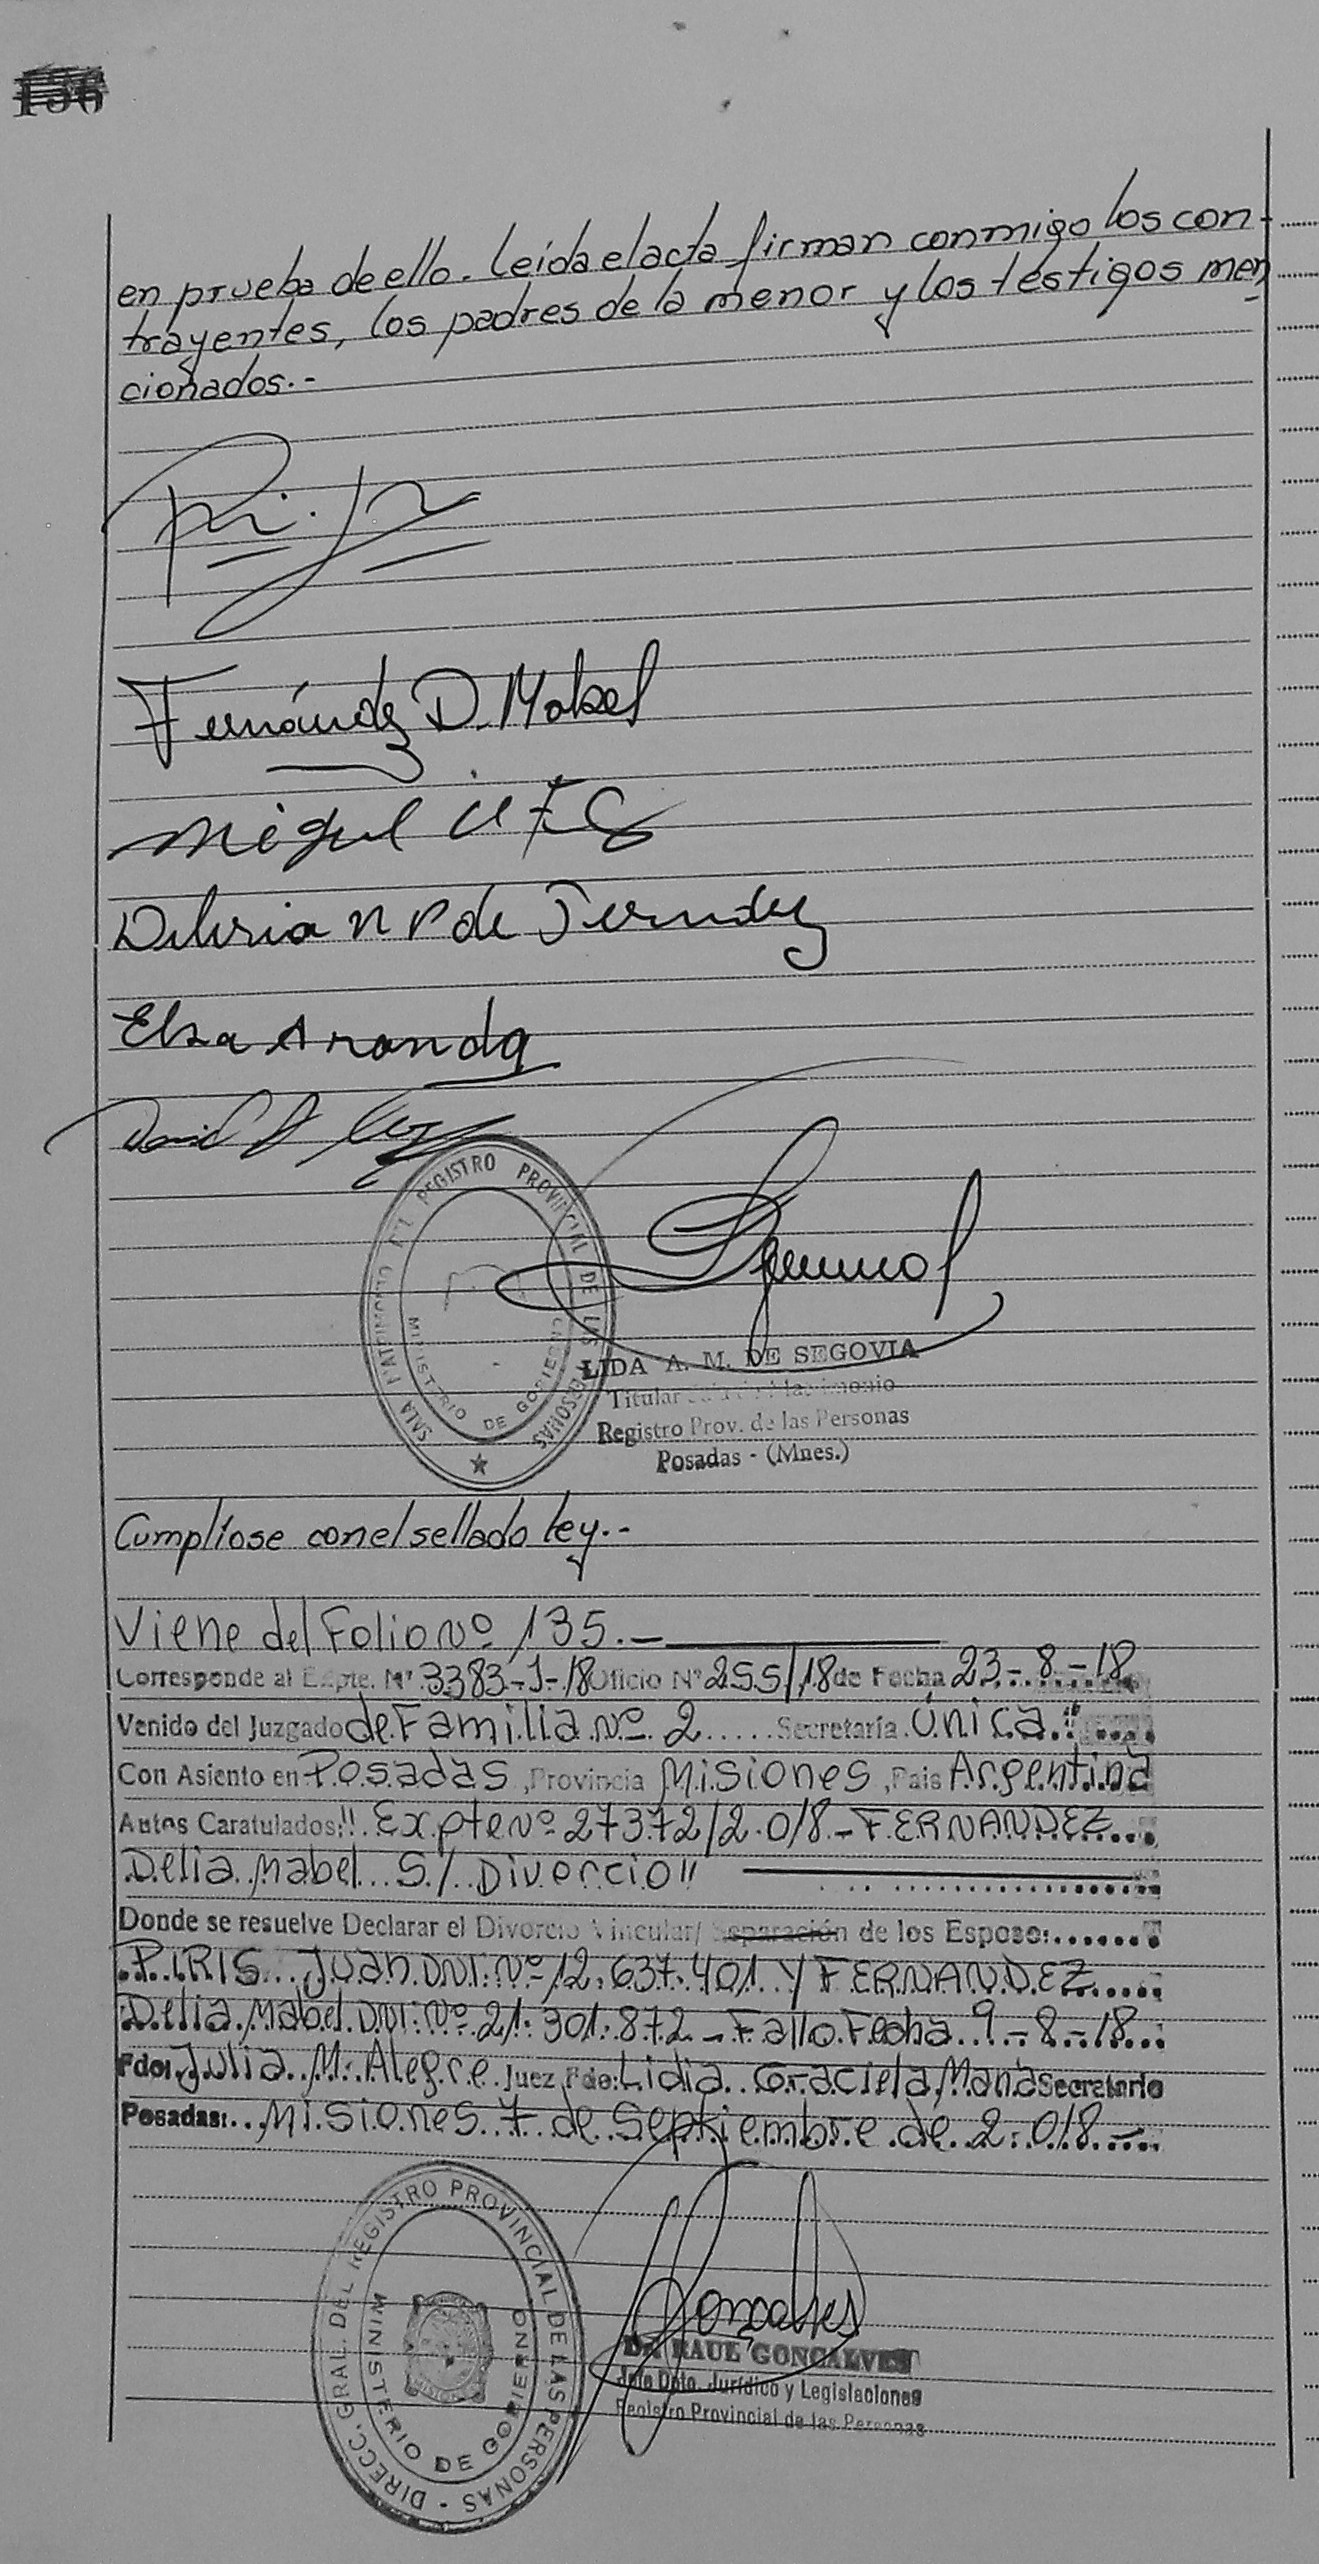 136
en prueba de ello. Leída el acta firman conmigo los con-
trayentes, los padres de la menor y los testigos men
cionados.-
Fernández D. Mabel
Miguel
de Fernández
Elsa Aranda
David
SALA MATRIMONIO DEL REGISTRO PROVINCIAL DE LAS PERSONAS
MINISTERIO DE GOBIERNO
LIDA A. M. DE SEGOVIA
Titular Sala de Matrimonio
Registro Prov. de las Personas
Posadas - (Mnes.)
Cumplíose con el sellado ley.-
Viene del Folio Nº 135.-
Corresponde al Expte. Nº 3383-J-18 Oficio Nº 255/18 de Fecha 23-8-18
Venido del Juzgado de Familia Nº 2 Secretaría Única.
Con Asiento en Posadas, Provincia Misiones, Pais Argentina
Autos Caratulados: "Expte Nº 27372/2.018 - FERNANDEZ
Delia Mabel S/ Divorcio"
Donde se resuelve Declarar el Divorcio Vincular/ Separación de los Esposo:
PIRIS Juan DNI. Nº 12.637.401 Y FERNANDEZ
Delia Mabel DNI. Nº 21.301.872 - Fallo Fecha 9-8-18
Fdo: Julia M. Alegre Juez Fdo: Lidia Graciela Maná Secretario
Posadas: Misiones 7 de Septiembre de 2.018.-
DIRECC. GRAL. DEL REGISTRO PROVINCIAL DE LAS PERSONAS -
MINISTERIO DE GOBIERNO
Goncalves
Dr. RAUL GONCALVES
Jefe Dpto. Jurídico y Legislaciones
Registro Provincial de las Personas